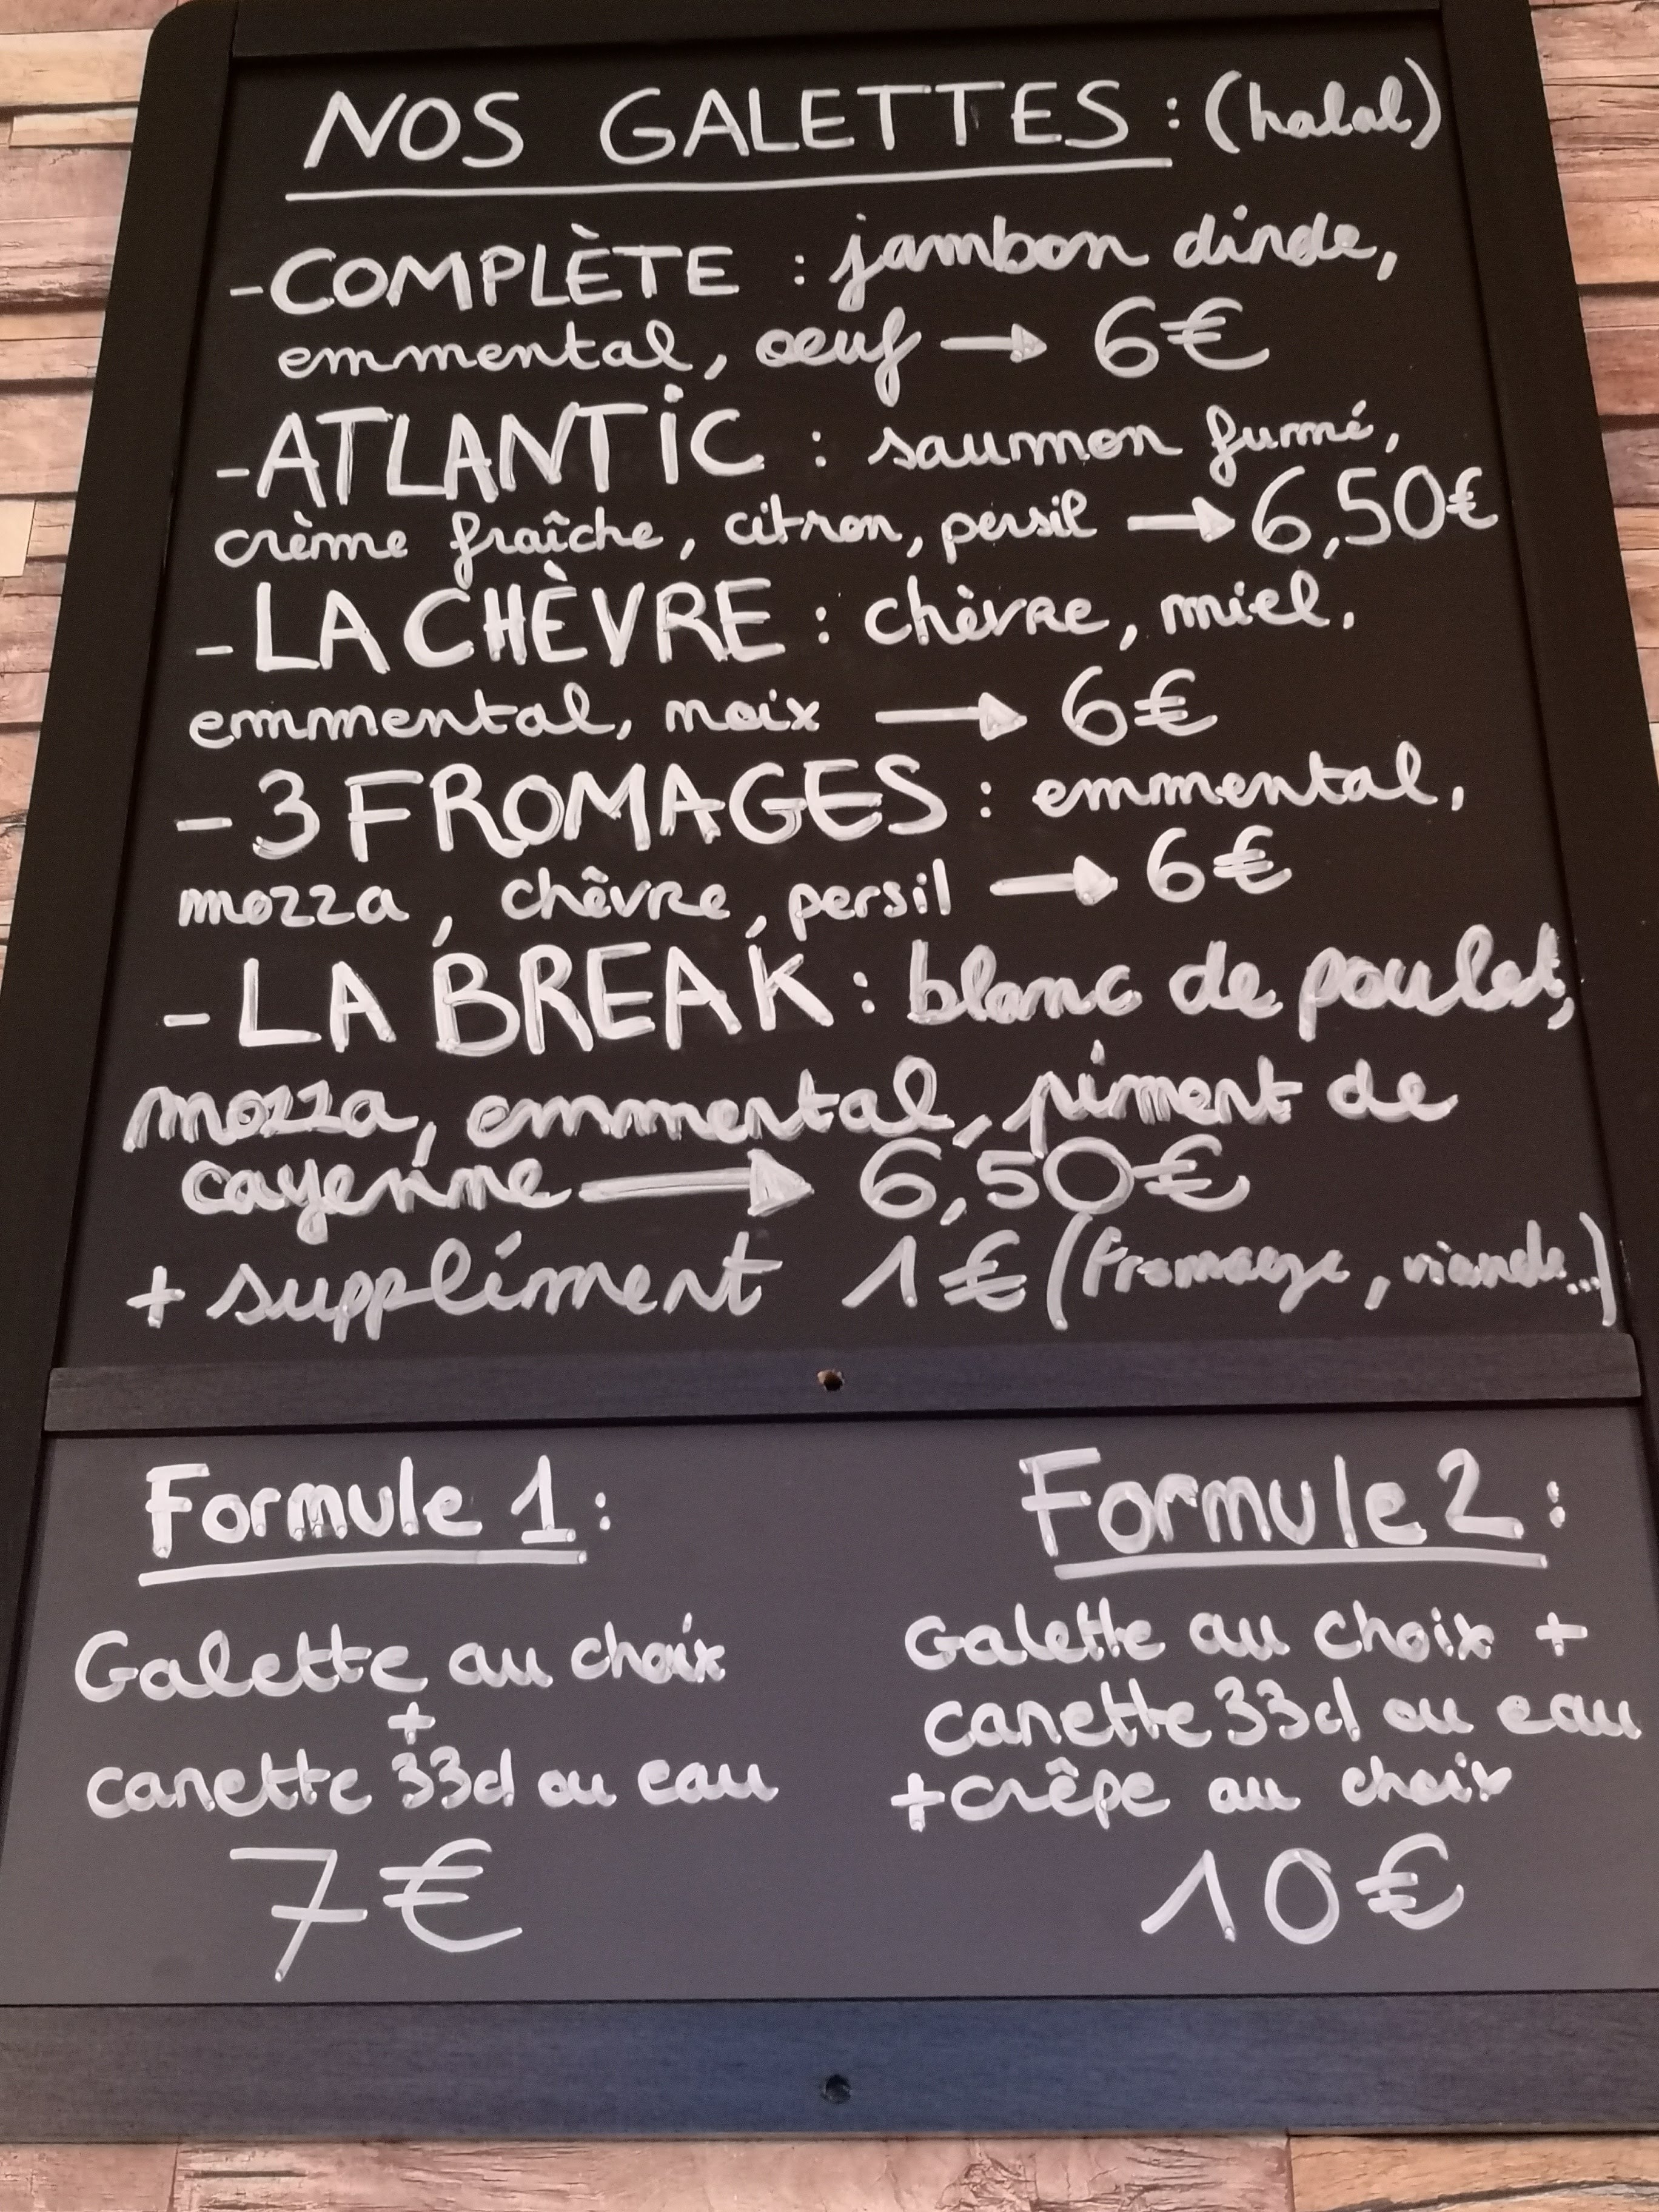 NOS GALETTES : (halal)
- COMPLÈTE : jambon dinde,
emmental, oeuf → 6€
- ATLANTIC : saumon fumé,
crème fraîche, citron, persil → 6,50€
- LA CHÈVRE : chèvre, miel,
emmental, noix → 6€
- 3 FROMAGES : emmental,
mozza, chêvre, persil → 6€
- LA BREAK : blanc de poulet,
mozza, emmental, piment de
cayenne → 6,50€
+ supplément 1€ (fromage, viande...)
Formule 1 :
Galette au choix
+
canette 33cl ou eau
7€
Formule 2 :
Galette au choix +
canette 33cl ou eau
+ crêpe au choix
10€